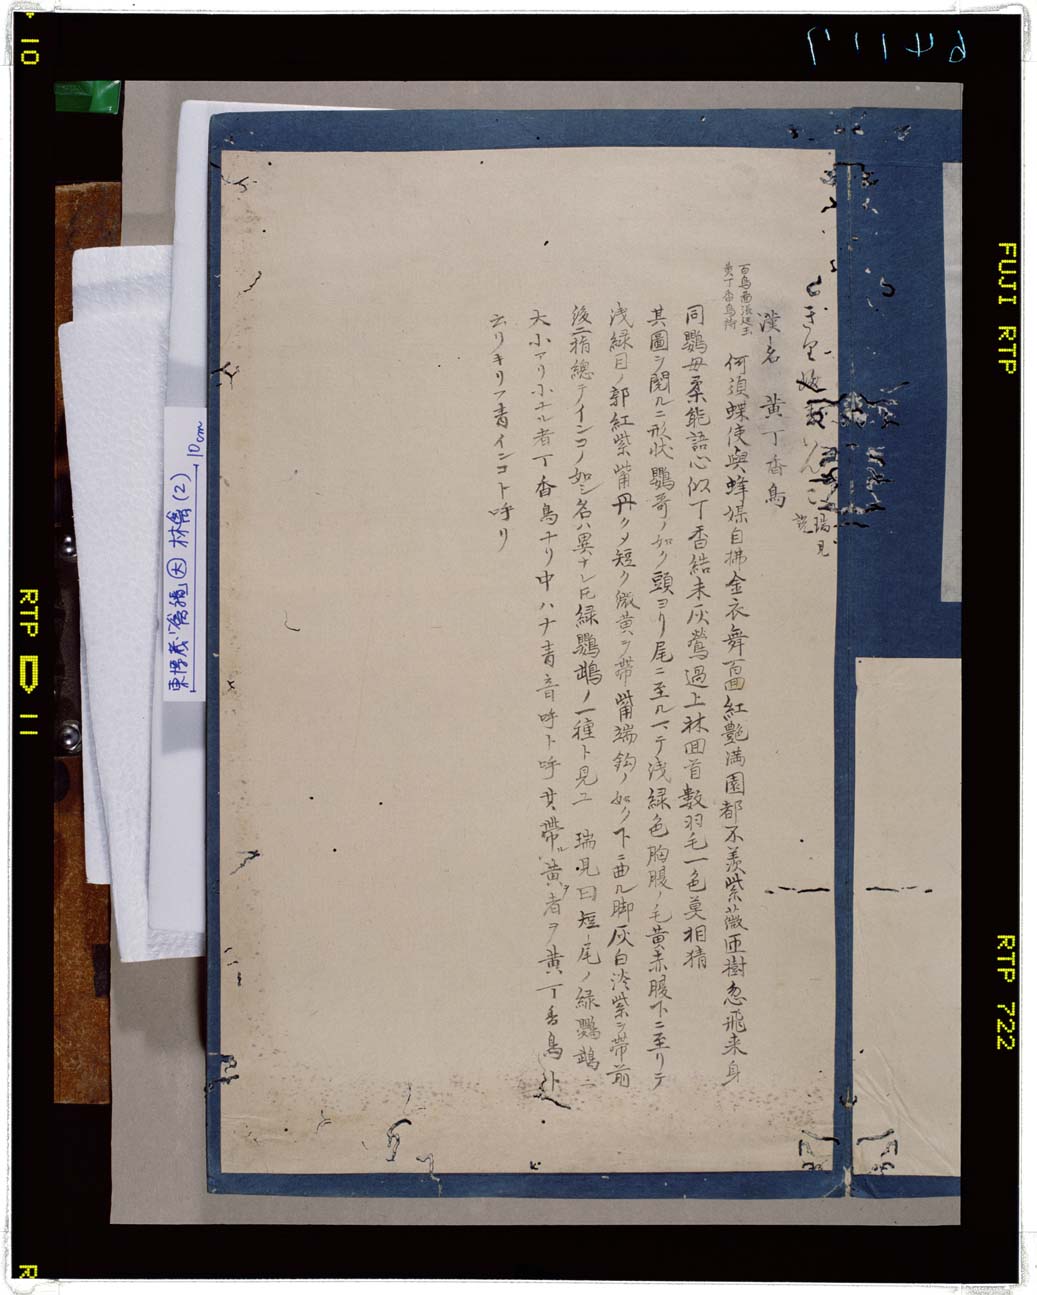 瑞見
説
漢名 黄丁香鳥
百鳥画
黄丁香鳥詩
何須蝶使與蜂媒自拂金衣舞百囬紅艶満園都不羨紫薇亜樹忽飛来身
同鸚母柔能語心似丁香結未灰鶯過上林囬首數羽毛一色莫相猜
其圖ヲ閲ルニ形状鸚哥ノ如ク頭ヨリ尾ニ至ルマテ浅緑色胸腹ノ毛黄赤腹下ニ至リテ
浅緑目ノ郭紅紫觜丹クメ短ク微黄ヲ帯觜端鈎ノ如ク下ニ曲ル脚灰白淡紫ヲ帯前
後二指總テインコノ如シ名ハ異ナレ𪜈緑鸚䳇ノ一種ト見ユ 瑞見曰短尾ノ緑鸚䳇ニ
大小アリ小ナル者丁香鳥ナリ中ハナ青音呼ト呼其帯黄者ヲ黄丁香鳥ト
云リキリフ青インコト呼リ
東博蔵「禽譜」 林禽(2)
10cm
64117
10
FUJI RTP
RTP 11
RTP 722
R